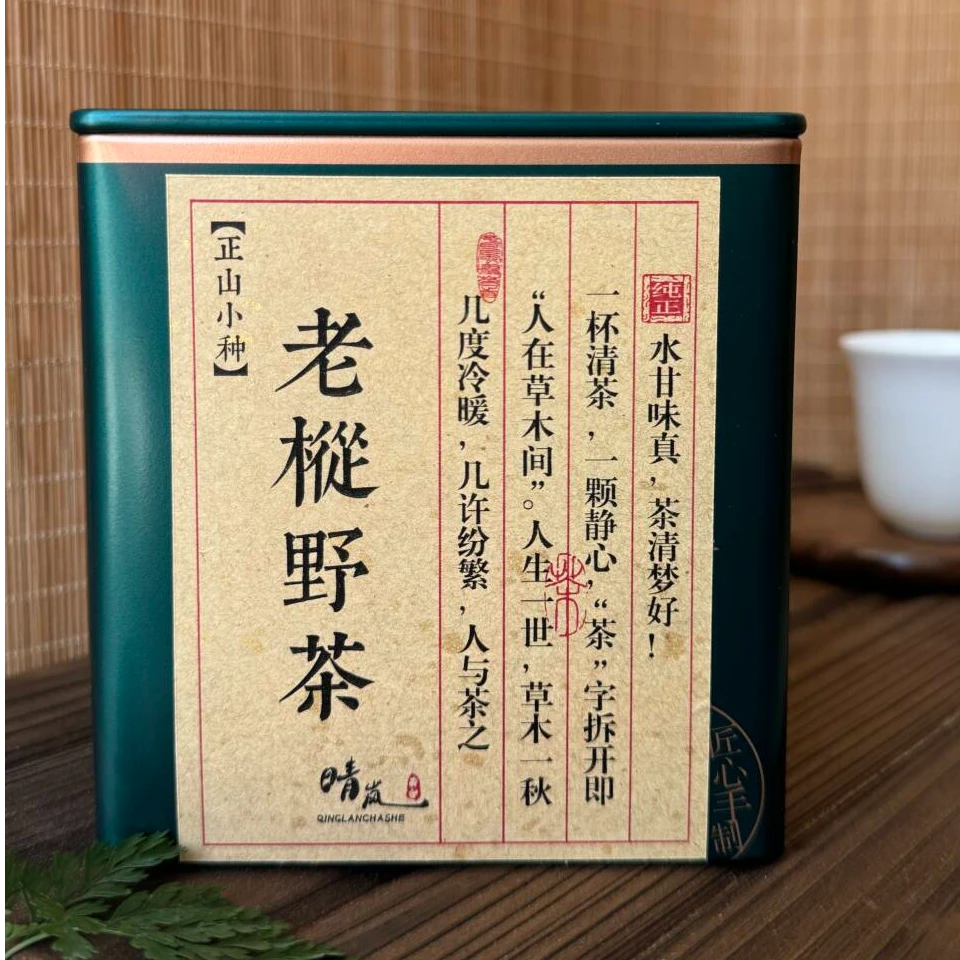 纯正
水甘味真，茶清梦好！
一杯清茶，一颗静心，“茶”字拆开即
“人在草木间”。人生一世，草木一秋
几度冷暖，几许纷繁，人与茶之
老樅野茶
【正山小种】
晴岚
QINGLANCHASHE
匠心手制